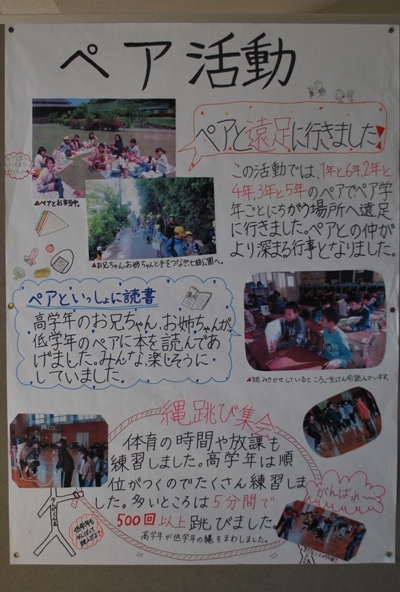 ペア活動
ペアと遠足に行きました
この活動では、1年と6年、2年と
4年、3年と5年のペアでペア学
年ごとにちがう場所へ遠足
に行きました。ペアとの仲が
より深まる行事となりました。
▲ペアとお弁当中。
▲お兄ちゃん、お姉ちゃんと手をつなぎ七柏公園へ。
ペアといっしょに読書
高学年のお兄ちゃん、お姉ちゃんが、
低学年のペアに本を読んであ
げました。みんな楽しそうに
していました。
縄跳び集会
体育の時間や放課も
練習しました。高学年は順
位がつくのでたくさん練習しま
した。多いところは5分間で
500回以上跳びました。
高学年が低学年の縄をまわしました。
がんばれ